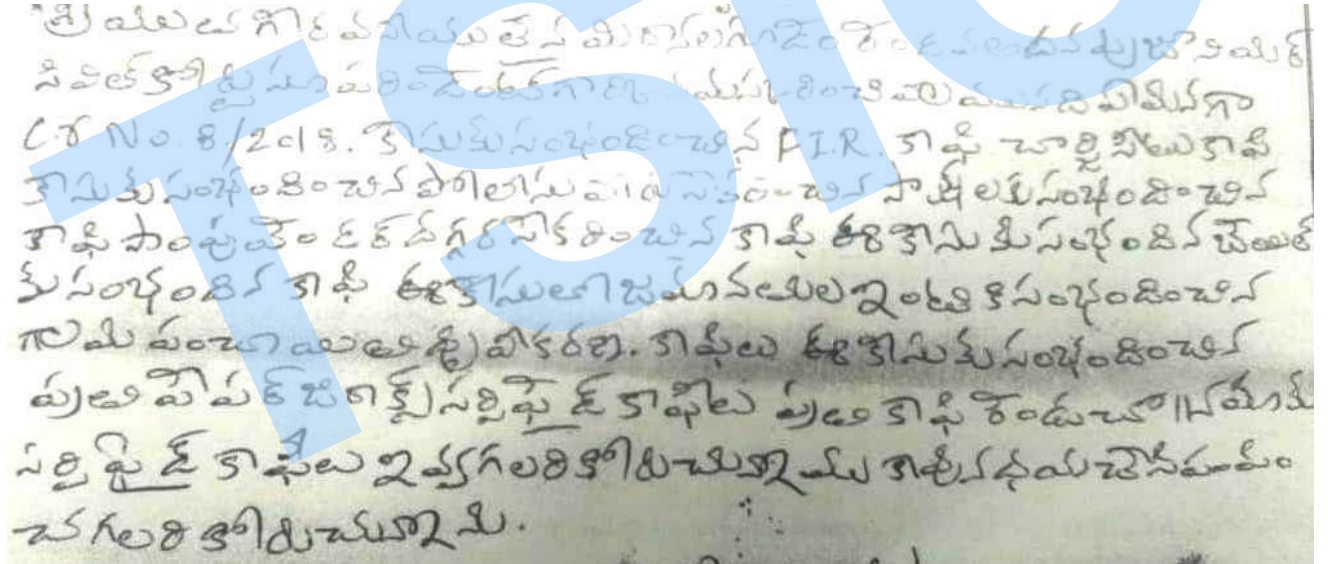 శ్రీయుత గౌరవనీయులైన మిర్యాలగూడెం రెండవ అదనపు జూనియర్
సివిల్ కోర్టు సూపరిండెంట్ గారికి నమస్కరించి వ్రాయునది ఏమనగా
CC No. 8/2018. కేసుకు సంభందించిన F.I.R. కాఫి చార్జిషీటు కాఫి
కేసుకు సంభందించిన పోలీసు వారు సేకరించిన సాక్షులకు సంభందించిన
కాఫి పంపు దగ్గర సేకరించిన కాఫి ఈ కేసుకు సంభందిన బెయిల్
కు సంభందిన కాఫి ఈ కేసులో జమానతుల ఇంటికి సంభందించిన
గ్రామ పంచాయితి ధృవీకరణ. కాఫీలు ఈ కేసుకు సంభందించిన
ప్రతి పేపర్ జిరాక్స్ సర్టిఫైడ్ కాఫీలు ప్రతి కాఫి రెండు చొ॥న మాకు
సర్టిఫైడ్ కాఫీలు ఇవ్వగలరి కోరుచున్నాము కావున దయచేసి పంపిం
చగలరి కోరుచున్నామి.